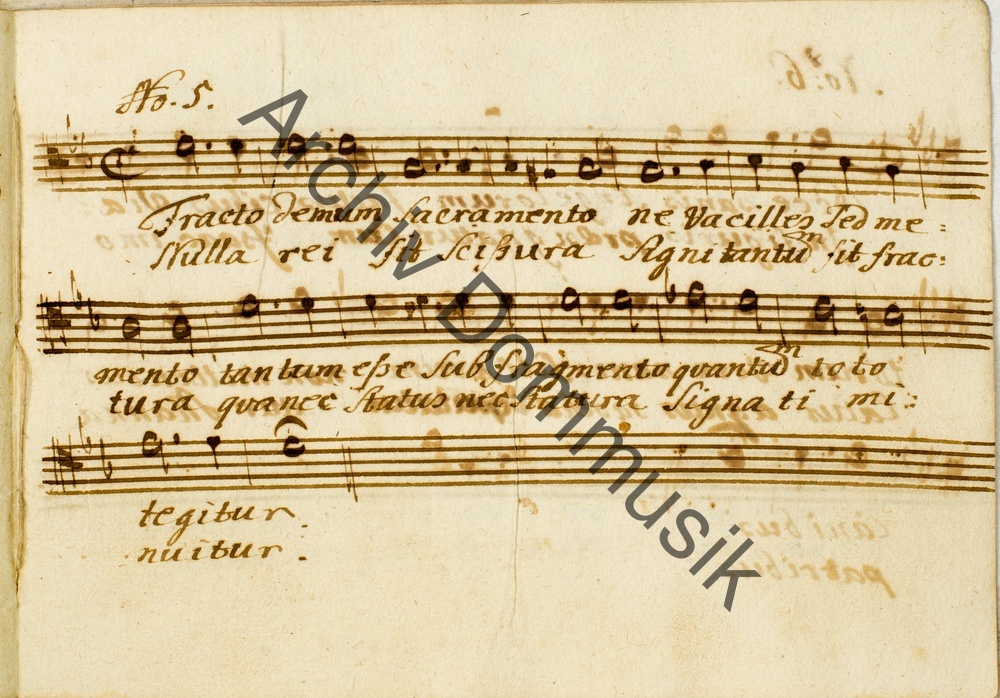 No. 5.
Fracto demum sacramento ne Vacilles Sed me=
Nulla rei fit Scißura Signi tantum fit frac=
mento tantum eße Sub fragmento quantum toto
tura qua nec Status nec Statura Signati mi=
tegitur.
nuitur.
Archiv Dommusik
No: 6.